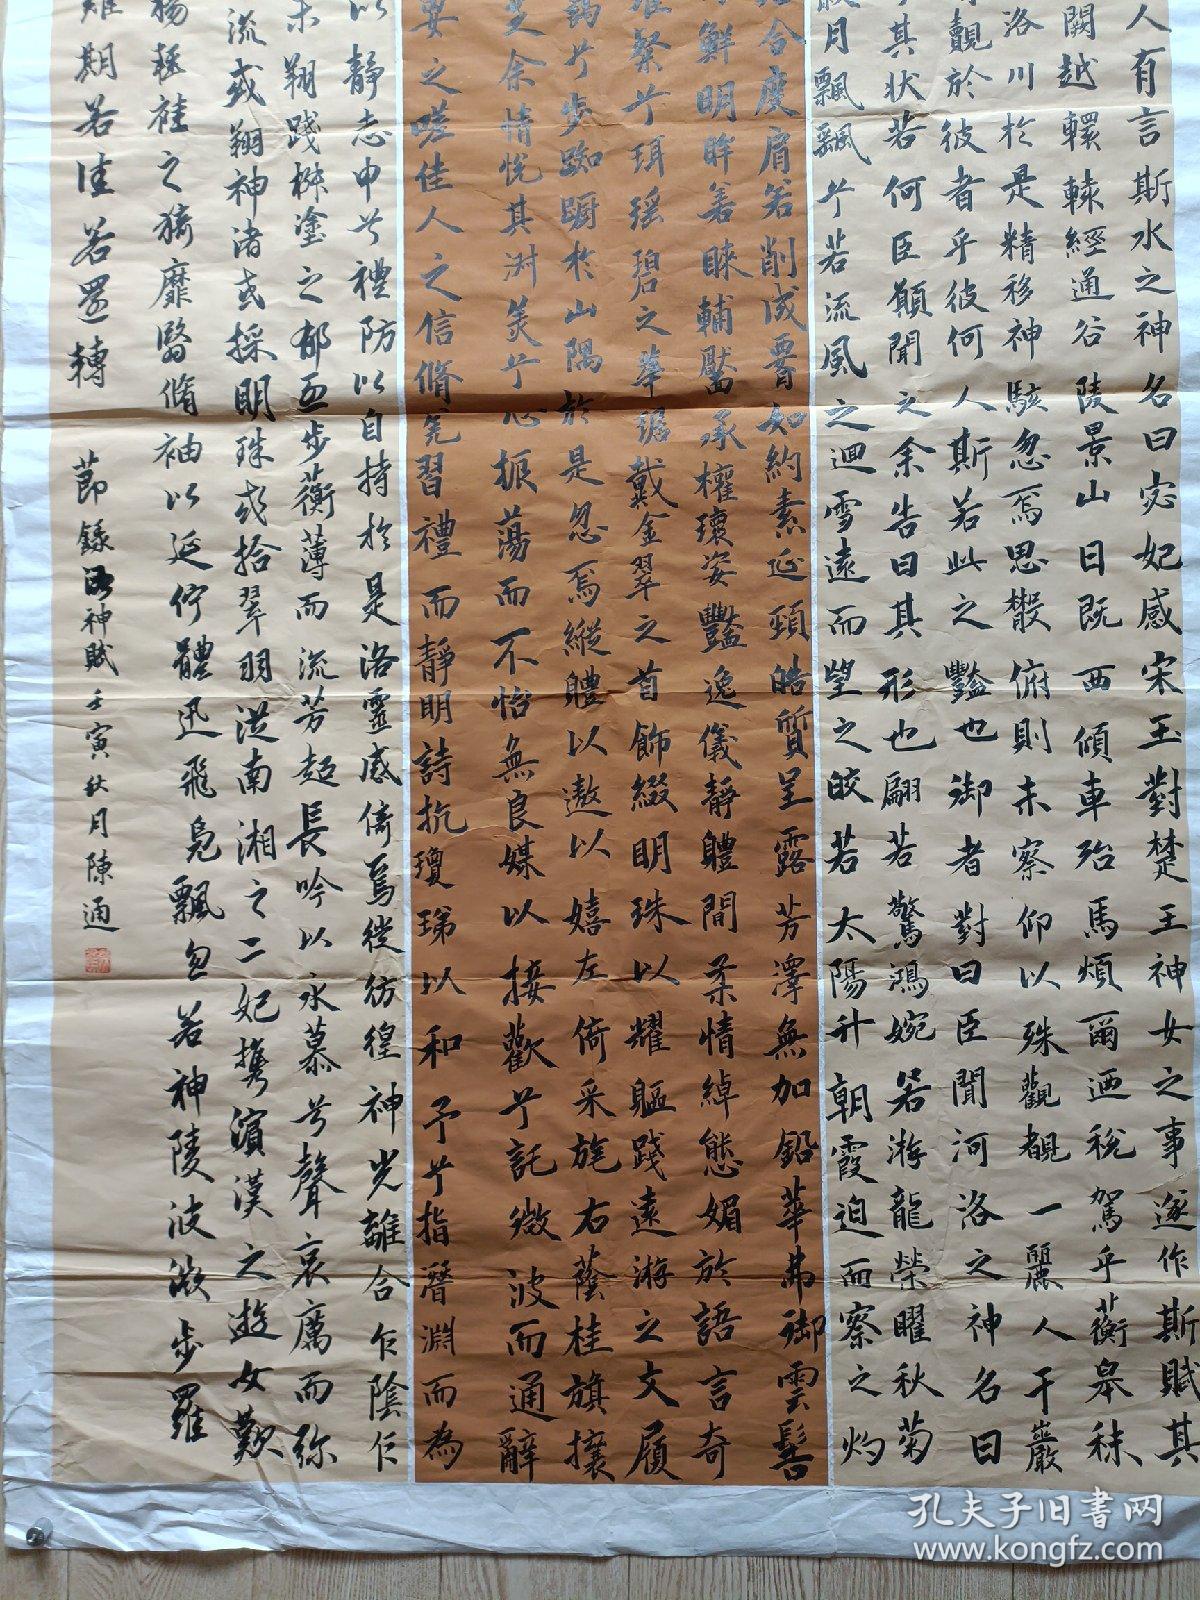 人有言斯水之神名曰宓妃感宋玉對楚王神女之事遂作斯賦其
闕越轘轅經通谷陵景山日既西傾車殆馬煩爾迺稅駕乎蘅皋秣
洛川於是精移神駭忽焉思散俯則未察仰以殊觀覩一麗人于巖
覿於彼者乎彼何人斯若此之豔也御者對曰臣聞河洛之神名曰
其狀若何臣願聞之余告曰其形也翩若驚鴻婉若游龍榮曜秋菊
月飄飄兮若流風之迴雪遠而望之皎若太陽升朝霞迫而察之灼
合度肩若削成要如約素延頸皓質呈露芳澤無加鉛華弗御雲髻
鮮明眸善睞輔靨承權瓌姿豔逸儀靜體閒柔情綽態媚於語言奇
粲兮珥瑤碧之華琚戴金翠之首飾綴明珠以耀軀踐遠游之文履
藹兮步踟躕於山隅於是忽焉縱體以遨以嬉左倚采旄右蔭桂旗攘
芝余情悅其淑美兮心振蕩而不怡無良媒以接歡兮託微波而通辭
要之嗟佳人之信脩羌習禮而靜明詩抗瓊珶以和予兮指潛淵而為
以靜志申兮禮防以自持於是洛靈感倚焉徙彷徨神光離合乍陰乍
未翔踐椒塗之郁烈步蘅薄而流芳超長吟以永慕兮聲哀厲而弥
流或翔神渚或採明珠或拾翠羽從南湘之二妃攜濱漢之遊女歎
揚輕袿之猗靡翳脩袖以延佇體迅飛鳧飄忽若神陵波微步羅
難期若往若還轉
節錄洛神賦壬寅秋月陳通
孔夫子旧书网
www.kongfz.com